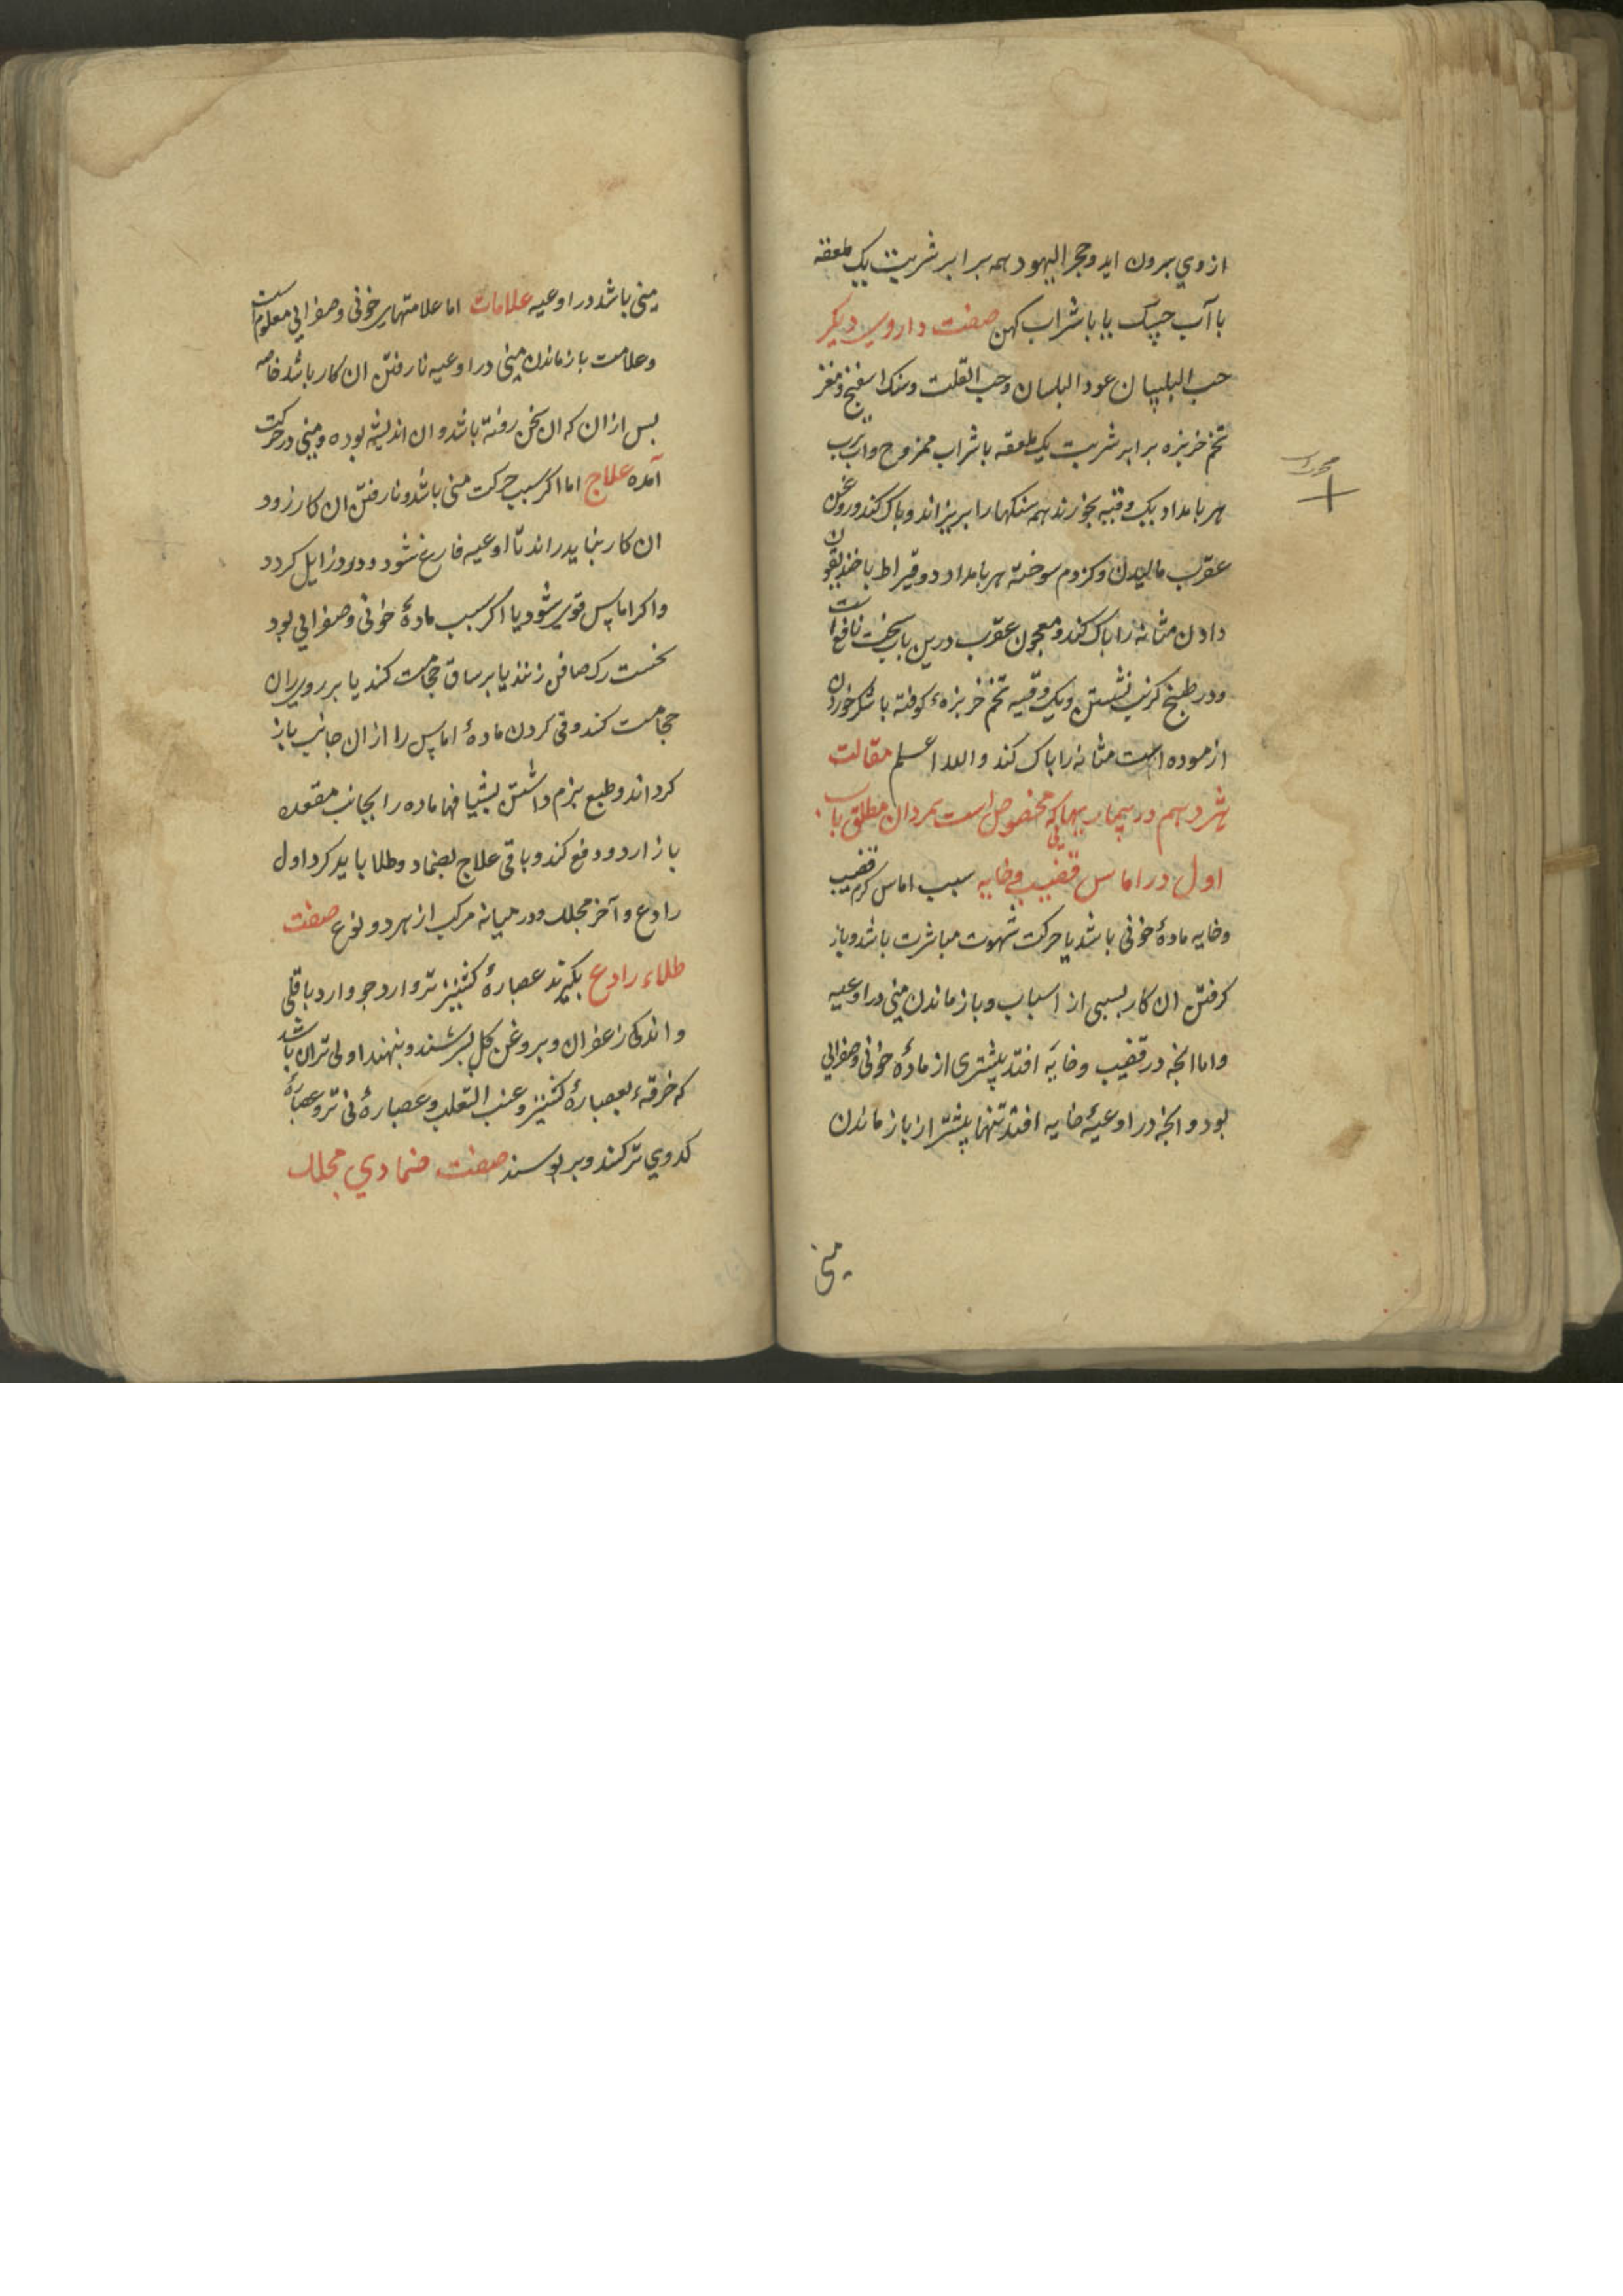 ازوي بیرون اید وحجر الیهود همه برابر شربت یک ملعقه
با آب جسک یا با شراب کهن صفت داروی دیکر
حب البلسان عود البلسان وحب القلت وسنک اسفنج ومغز
تخم خربزه برابر شربت یک ملعقه با شراب ممزوج واب ترب
هر بامداد یک وقیه بخورند همه سنکها را بریزاند وپاک کند وروغن
عقرب مالیدن وکزدم سوخته هر بامداد دو قیراط با خندیقون
دادن مثانه را پاک کند ومعجون عقرب درین باب سخت نافع است
ودر طبیخ کرنب نشستن ویک وقیه تخم خربزه کوفته با شکر خوردن
ازموده است مثانه را پاک کند والله اعلم مقالت
شردهم در بیماریهائی که مخصوص است بمردان مطلق باب
اول در اماس قضیب وخایه سبب اماس کرم قضیب
وخایه ماده خونی باشد یا حرکت شهوت مباشرت باشد وباز
کرفتن ان کار بسببی از اسباب وباز ماندن منی در اوعیه
واما انجه در قضیب وخایه افتد بیشتری از مادهٔ خونی وصفرایی
بود وانجه در اوعیهٔ خایه افتد تنها بیشتر از باز ماندن
منی
منی باشد در اوعیه علامات اما علامتهای خونی وصفرایی معلوم است
وعلامت باز ماندن منی در اوعیه نارفتن ان کار باشد خاصه
پس ازان که ان سخن رفته باشد وان اندیشه بوده ومنی در حرکت
آمده علاج اما اکر سبب حرکت منی باشد ونارفتن ان کار زود
ان کار بباید راند تا اوعیه فارغ شود ودرد زایل کردد
واکر اماس قوی شود یا اکر سبب مادهٔ خونی وصفرایی بود
نخست رک صافن زنند یا بر ساق حجامت کند یا بر روی ران
حجامت کند وقی کردن مادهٔ اماس را ازان جانب باز
کرداند وطبع نرم داشتن بشیافها ماده را بجانب مقعده
باز ارد ودفع کند وباقی علاج بضماد وطلا باید کرد اول
رادع وآخر محلل ودر میانه مرکب از هر دو نوع صفت
طلاء رادع بکیرند عصارهٔ کشنیز تر وارد جو وارد باقلی
واندکی زعفران وبروغن کل بسرشند وبنهند اولی تر ان باشد
که خرقهء بعصارهٔ کشنیز وعنب الثعلب وعصارهٔ نی تر وعصارهٔ
کدوي تر کنند وبر پوسند صفت ضمادي محلل